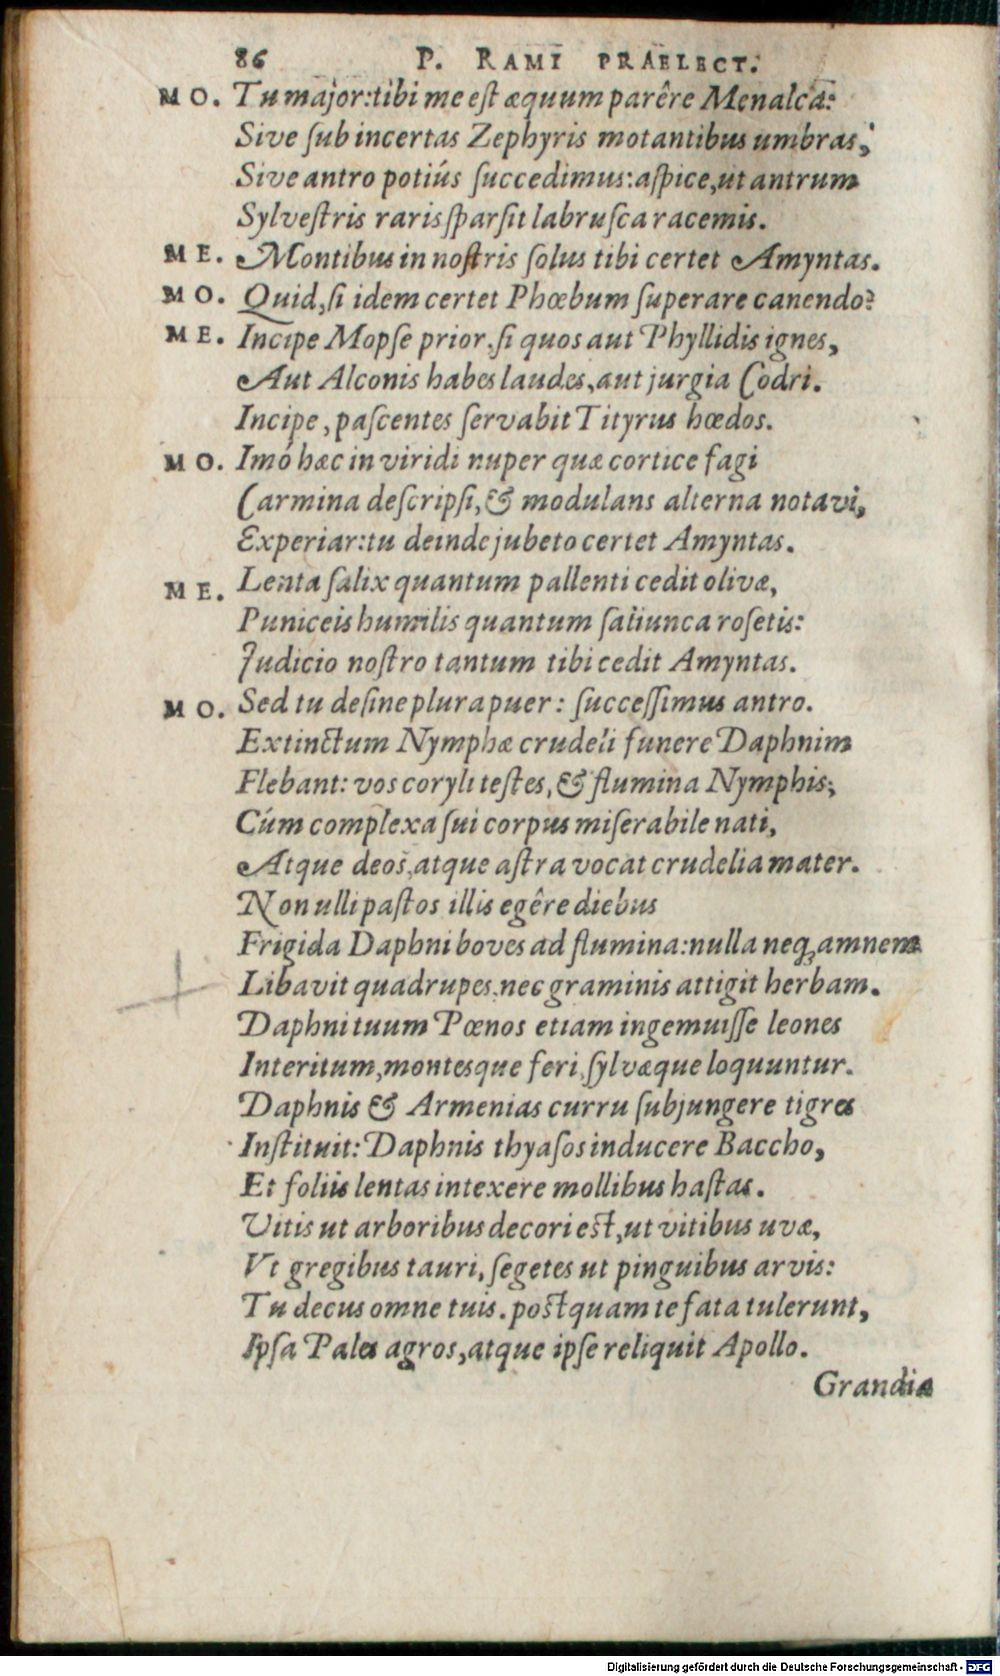 86 P. RAMI PRAELECT.
MO. Tu major: tibi me est æquum parêre Menalca:
Sive sub incertas Zephyris motantibus umbras,
Sive antro potiús succedimus: aspice, ut antrum
Sylvestris raris sparsit labrusca racemis.
ME. Montibus in nostris solus tibi certet Amyntas.
MO. Quid, si idem certet Phœbum superare canendo?
ME. Incipe Mopse prior, si quos aut Phyllidis ignes,
Aut Alconis habes laudes, aut jurgia Codri.
Incipe, pascentes servabit Tityrus hœdos.
MO. Imó hæc in viridi nuper quæ cortice fagi
Carmina descripsi, & modulans alterna notavi,
Experiar: tu deinde jubeto certet Amyntas.
ME. Lenta salix quantum pallenti cedit olivæ,
Puniceis humilis quantum saliunca rosetis:
Judicio nostro tantum tibi cedit Amyntas.
MO. Sed tu desine plura puer: successimus antro.
Extinctum Nymphæ crudeli funere Daphnim
Flebant: vos coryli testes, & flumina Nymphis;
Cúm complexa sui corpus miserabile nati,
Atque deos, atque astra vocat crudelia mater.
Non ulli pastos illis egêre diebus
Frigida Daphni boves ad flumina: nulla neq; amnem
Libavit quadrupes, nec graminis attigit herbam.
Daphni tuum Pœnos etiam ingemuisse leones
Interitum, montesque feri, sylvæque loquuntur.
Daphnis & Armenias curru subjungere tigres
Instituit: Daphnis thyasos inducere Baccho,
Et foliis lentas intexere mollibus hastas.
Vitis ut arboribus decori est, ut vitibus uvæ,
Vt gregibus tauri, segetes ut pinguibus arvis:
Tu decus omne tuis. postquam te fata tulerunt,
Ipsa Pales agros, atque ipse reliquit Apollo.
Grandia
Digitalisierung gefördert durch die Deutsche Forschungsgemeinschaft - DFG